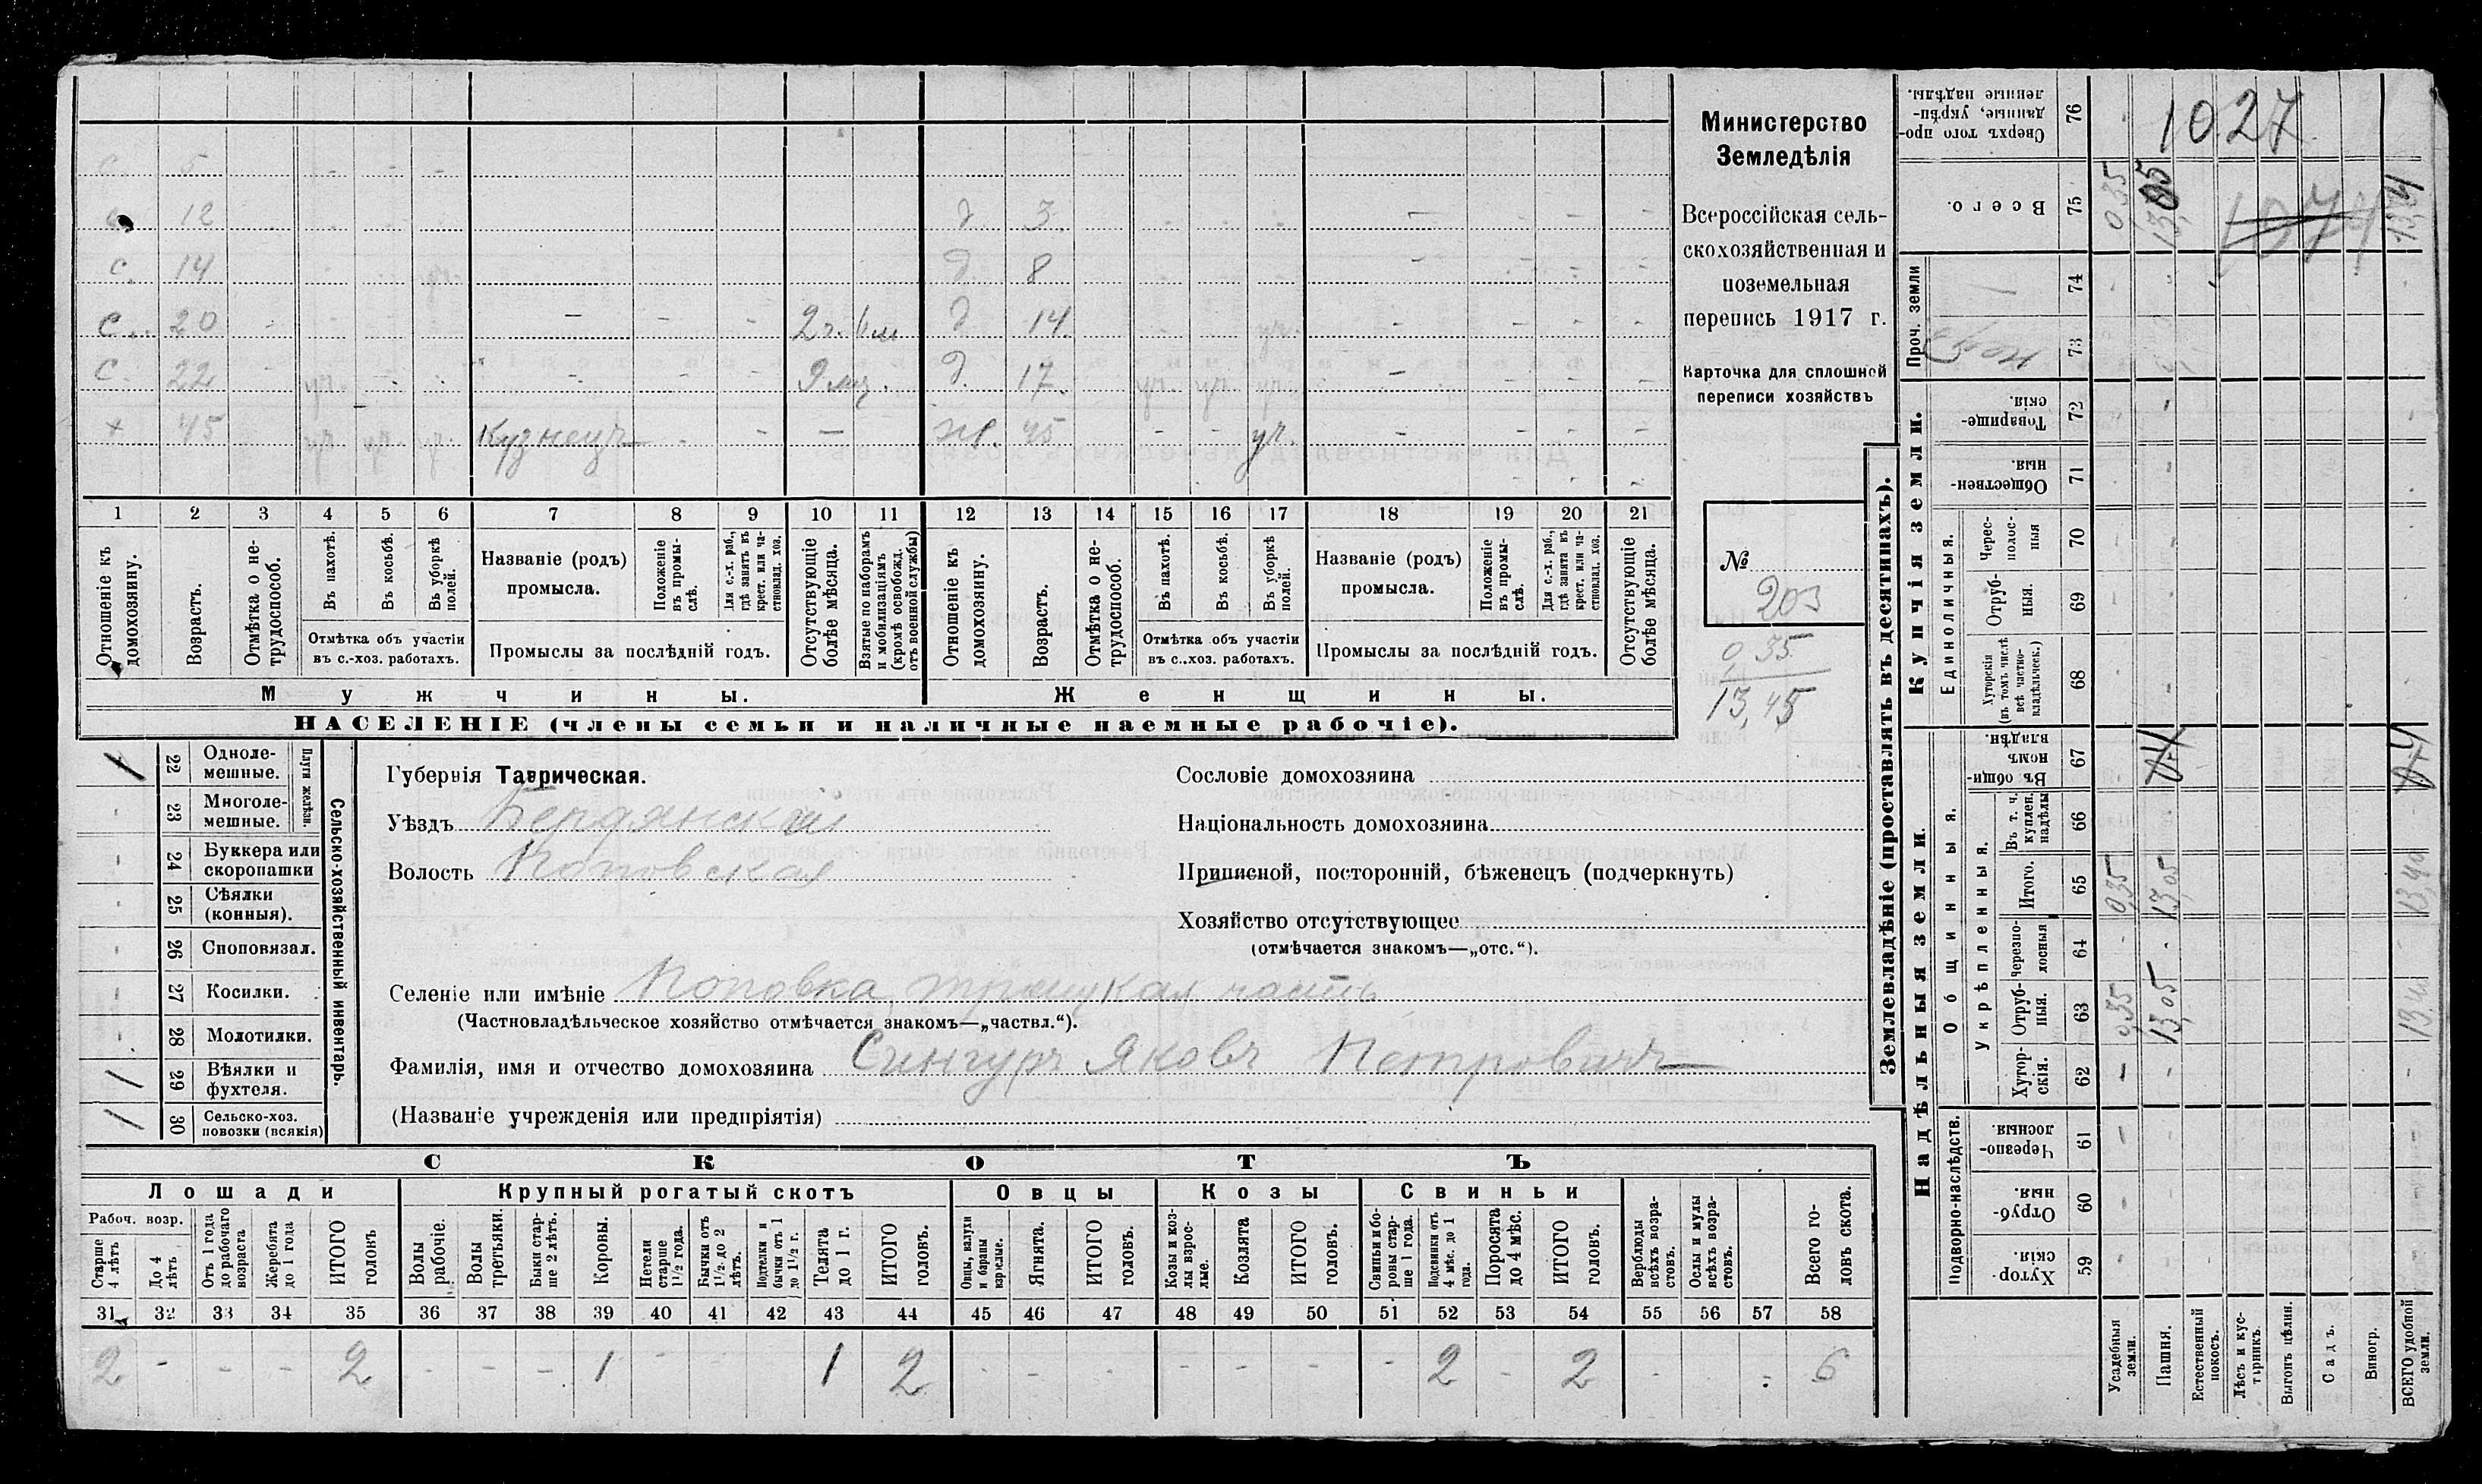 с. 5 - - -
12 - - - д 3. - - - - - - -
с. 14 - - д. 8 - - - -
с. 20 - - - - - - - 2 г. 6 м д 14. - - уч. - - - -
с. 22 - уч. - - - - - 9 мц. д. 17 уч. уч. уч. - - - -
х 45 уч уч. у. Кузнецъ - - - ж. 45 - - уч. - - - -
1 2 3 4 5 6 7 8 9 10 11 12 13 14 15 16 17 18 19 20 21
Отношеніе къ домохозяину.
Возрастъ.
Отмѣтка о нетрудоспособ.
Въ пахотѣ.
Въ косьбѣ.
Въ уборкѣ полей.
Отмѣтка объ участіи въ с.-хоз. работахъ.
Названіе (родъ) промысла.
Положеніе въ промыслѣ.
Для с.-х. раб., гдѣ занятъ въ крест. или частновлад. хоз.
Промыслы за послѣдній годъ.
Отсутствующіе болѣе мѣсяца.
Взятые по наборамъ и мобилизаціямъ (кромѣ освобожд. отъ военной службы)
Отношеніе къ домохозяину.
Возрастъ.
Отмѣтка о нетрудоспособ.
Въ пахотѣ.
Въ косьбѣ.
Въ уборкѣ полей.
Отмѣтка объ участіи въ с..хоз. работахъ.
Названіе (родъ) промысла.
Положеніе въ промыслѣ.
Для с.-х. раб., гдѣ занята въ крест. или частновлад. хоз.
Промыслы за послѣдній годъ.
Отсутствующіе болѣе мѣсяца.
Мужчины. Женщины.
НАСЕЛЕНІЕ (члены семьи и наличные наемные рабочіе).
Министерство
Земледѣлія
Всероссійская сель-
скохозяйственная и
поземельная
перепись 1917 г.
Карточка для сплошной
переписи хозяйствъ
№
203
0,35
13,45
1 22 Одноле-мешные.
- 23 Многоле-мешные.
Плуги желѣзн.
- 24 Буккера или скоропашки
- 25 Сѣялки (конныя).
- 26 Сноповязал.
- 27 Косилки.
- 28 Молотилки.
1 29 Вѣялки и фухтеля.
1 30 Сельско-хоз. повозки (всякія)
Сельско-хозяйственный инвентарь.
Губернія Таврическая.
Уѣздъ Бердянскій
Волость Поповская
Сословіе домохозяина
Національность домохозяина
Приписной, посторонній, бѣженецъ (подчеркнуть)
Хозяйство отсутствующее
(отмѣчается знакомъ—„отс.“).
Селеніе или имѣніе Поповка, часть
(Частновладѣльческое хозяйство отмѣчается знакомъ—„частвл.“).
Фамилія, имя и отчество домохозяина Сингуръ Яковъ Петровичъ
(Названіе учрежденія или предпріятія)
СКОТЪ
Лошади Крупный рогатый скотъ Овцы Козы Свиньи
Рабоч. возр.
Старше 4 лѣтъ
До 4 лѣтъ
Отъ 1 года до рабочаго возраста
Жеребята до 1 года
ИТОГО головъ
Волы рабочіе.
Волы третьяки.
Быки старше 2 лѣтъ.
Коровы.
Нетели старше 1 1/2 года.
Бычки отъ 1 1/2 до 2 лѣтъ.
Подтелки и бычки отъ 1 до 1 1/2 г.
Телята до 1 г.
ИТОГО головъ.
Овцы, валухи и бараны взрослые.
Ягнята.
ИТОГО головъ.
Козы и козлы взрослые.
Козлята
ИТОГО головъ.
Свиньи боровы старше 1 года.
Подсвинки отъ 4 мѣс. до 1 года.
Поросята до 4 мѣс.
ИТОГО головъ.
Верблюды всѣхъ возрастовъ.
Ослы и мулы всѣхъ возрастовъ.
Всего головъ скота.
31 32 33 34 35 36 37 38 39 40 41 42 43 44 45 46 47 48 49 50 51 52 53 54 55 56 57 58
2 - - - 2 - - - 1 - - 1 2 - - - - - - - 2 - 2 - - 6
Землевладѣніе (проставлять въ десятинахъ).
Сверхъ того проданные, укрѣпленные надѣлы. 76
1027
Всего. 75 0,35 13,05 1074 13,4
Проч. земли
74
73
Купчія земли.
Товарищескія. 72
Общественныя. 71
Единоличныя.
Чересполосныя 70
Отрубныя. 69
Хуторскія (въ томъ числѣ всѣ частновладѣльческ.) 68
Надѣльныя земли.
Общинныя.
Въ общинномъ владѣн. 67
Укрѣпленныя.
Въ т. ч. куплен. надѣлы 66
Итого. 65 0,35 13,05 13,40
Черезполосныя 64
Отрубныя. 63 0,35 13,05 13,40
Хуторскія. 62
Подворно-наслѣдств.
Черезполосныя. 61
Отрубныя. 60
Хуторскія. 59
Усадебныя земли.
Пашня.
Естественный покосъ.
Лѣсъ и кустарникъ.
Выгонъ цѣлин.
Садъ.
Виногр.
ВСЕГО удобной земли.